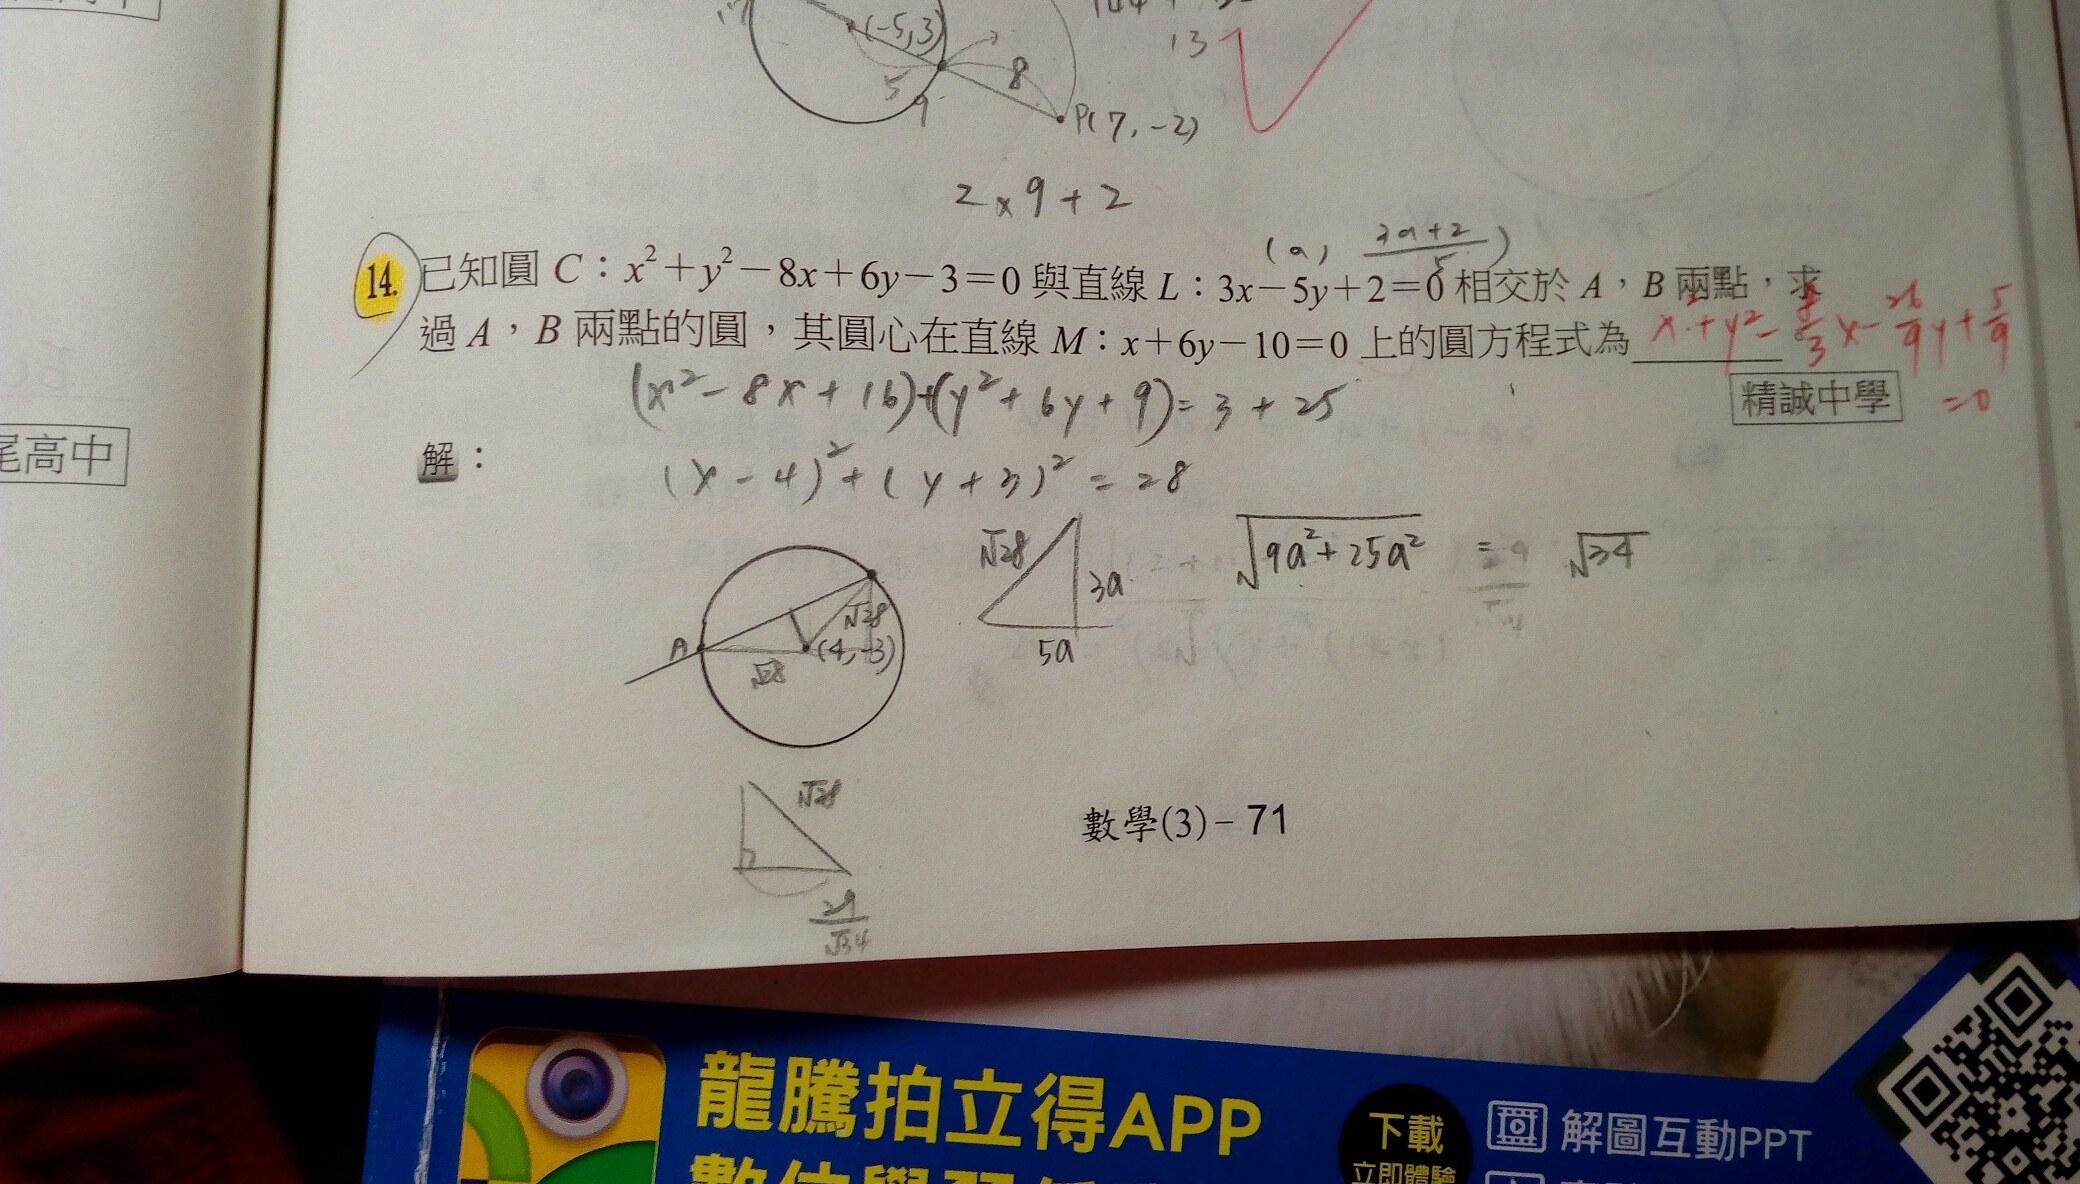 (-5,3)
13
5
8
9
P(7,-2)
2×9+2
(a, 3a+2/5)
14. 已知圓 C:x²+y²-8x+6y-3=0 與直線 L:3x-5y+2=0 相交於 A,B 兩點,求
過 A,B 兩點的圓,其圓心在直線 M:x+6y-10=0 上的圓方程式為 x²+y²-8/3x-26/9y+5/9
=0
精誠中學
(x²-8x+16)+(y²+6y+9)=3+25
尾高中
解:
(x-4)²+(y+3)²=28
√28
3a
5a
√9a²+25a² = √34
A
√28
(4,-3)
√28
√28
29/√34
數學(3)-71
龍騰拍立得APP
下載
立即體驗
解圖互動PPT